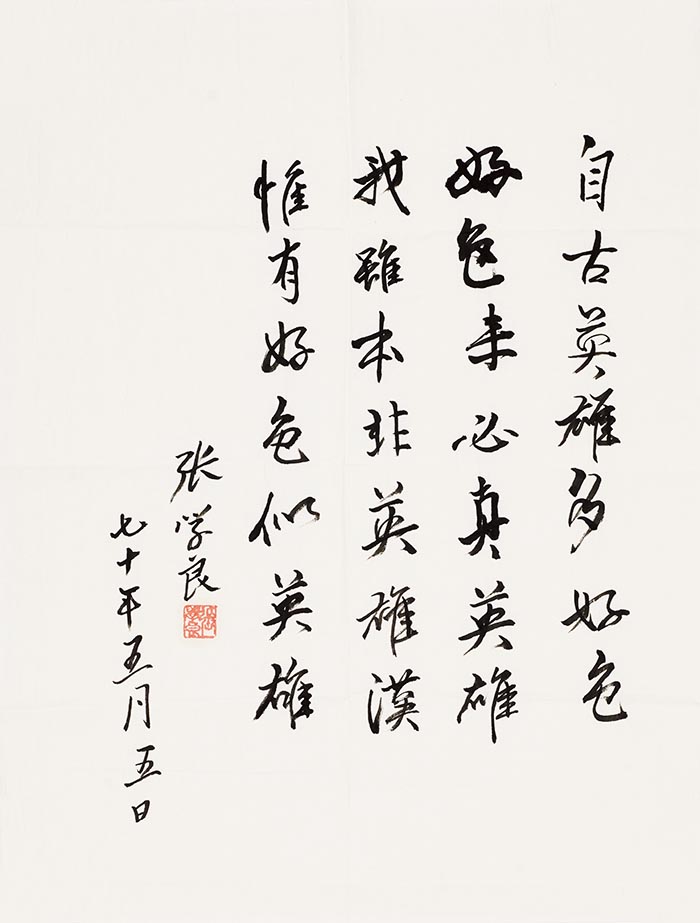 自古英雄多好色
好色未必真英雄
我雖本非英雄漢
惟有好色似英雄
张学良
七十年五月五日